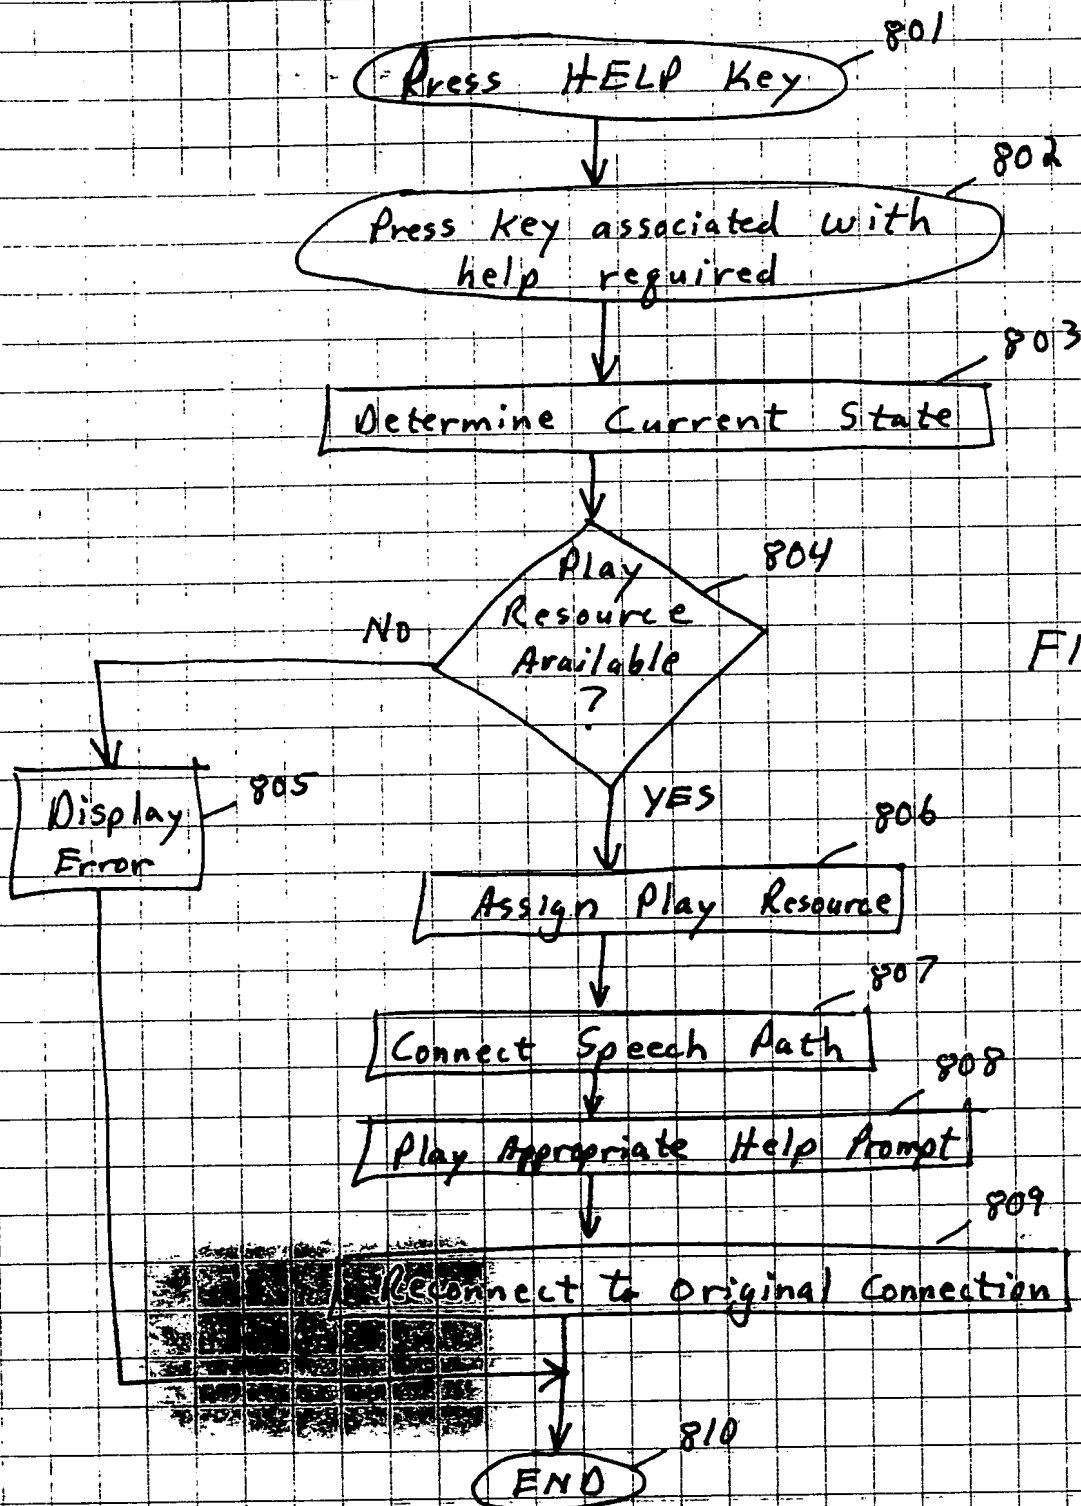 801
Press HELP Key
802
Press key associated with
help required
803
Determine Current State
804
Play
Resource
Available
?
No
FI
YES
805
Display
Error
806
Assign Play Resource
807
Connect Speech Path
808
Play Appropriate Help Prompt
809
Reconnect to Original Connection
810
END